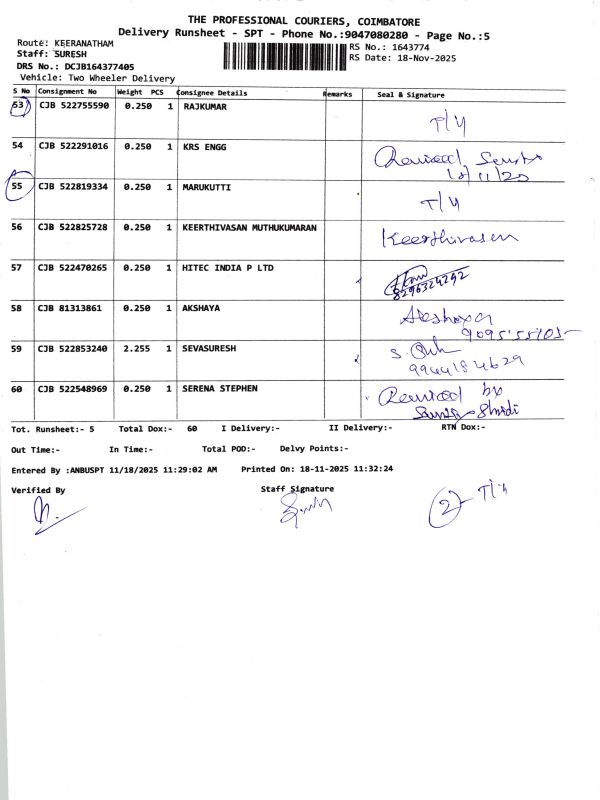 THE PROFESSIONAL COURIERS, COIMBATORE
Delivery Runsheet - SPT - Phone No.:9047080280 - Page No.:5
Route: KEERANATHAM
RS No.: 1643774
Staff: SURESH
RS Date: 18-Nov-2025
DRS No.: DCJB164377405
Vehicle: Two Wheeler Delivery
S No Consignment No Weight PCS Consignee Details Remarks Seal & Signature
53 CJB 522755590 0.250 1 RAJKUMAR
T/Y
54 CJB 522291016 0.250 1 KRS ENGG
55 CJB 522819334 0.250 1 MARUKUTTI
T/Y
56 CJB 522825728 0.250 1 KEERTHIVASAN MUTHUKUMARAN
Keerthivasan
57 CJB 522470265 0.250 1 HITEC INDIA P LTD
8296324292
58 CJB 81313861 0.250 1 AKSHAYA
59 CJB 522853240 2.255 1 SEVASURESH
9944184629
60 CJB 522548969 0.250 1 SERENA STEPHEN
Tot. Runsheet:- 5 Total Dox:- 60 I Delivery:- II Delivery:- RTN Dox:-
Out Time:- In Time:- Total POD:- Delvy Points:-
Entered By :ANBUSPT 11/18/2025 11:29:02 AM Printed On: 18-11-2025 11:32:24
Verified By Staff Signature
2 T/Y